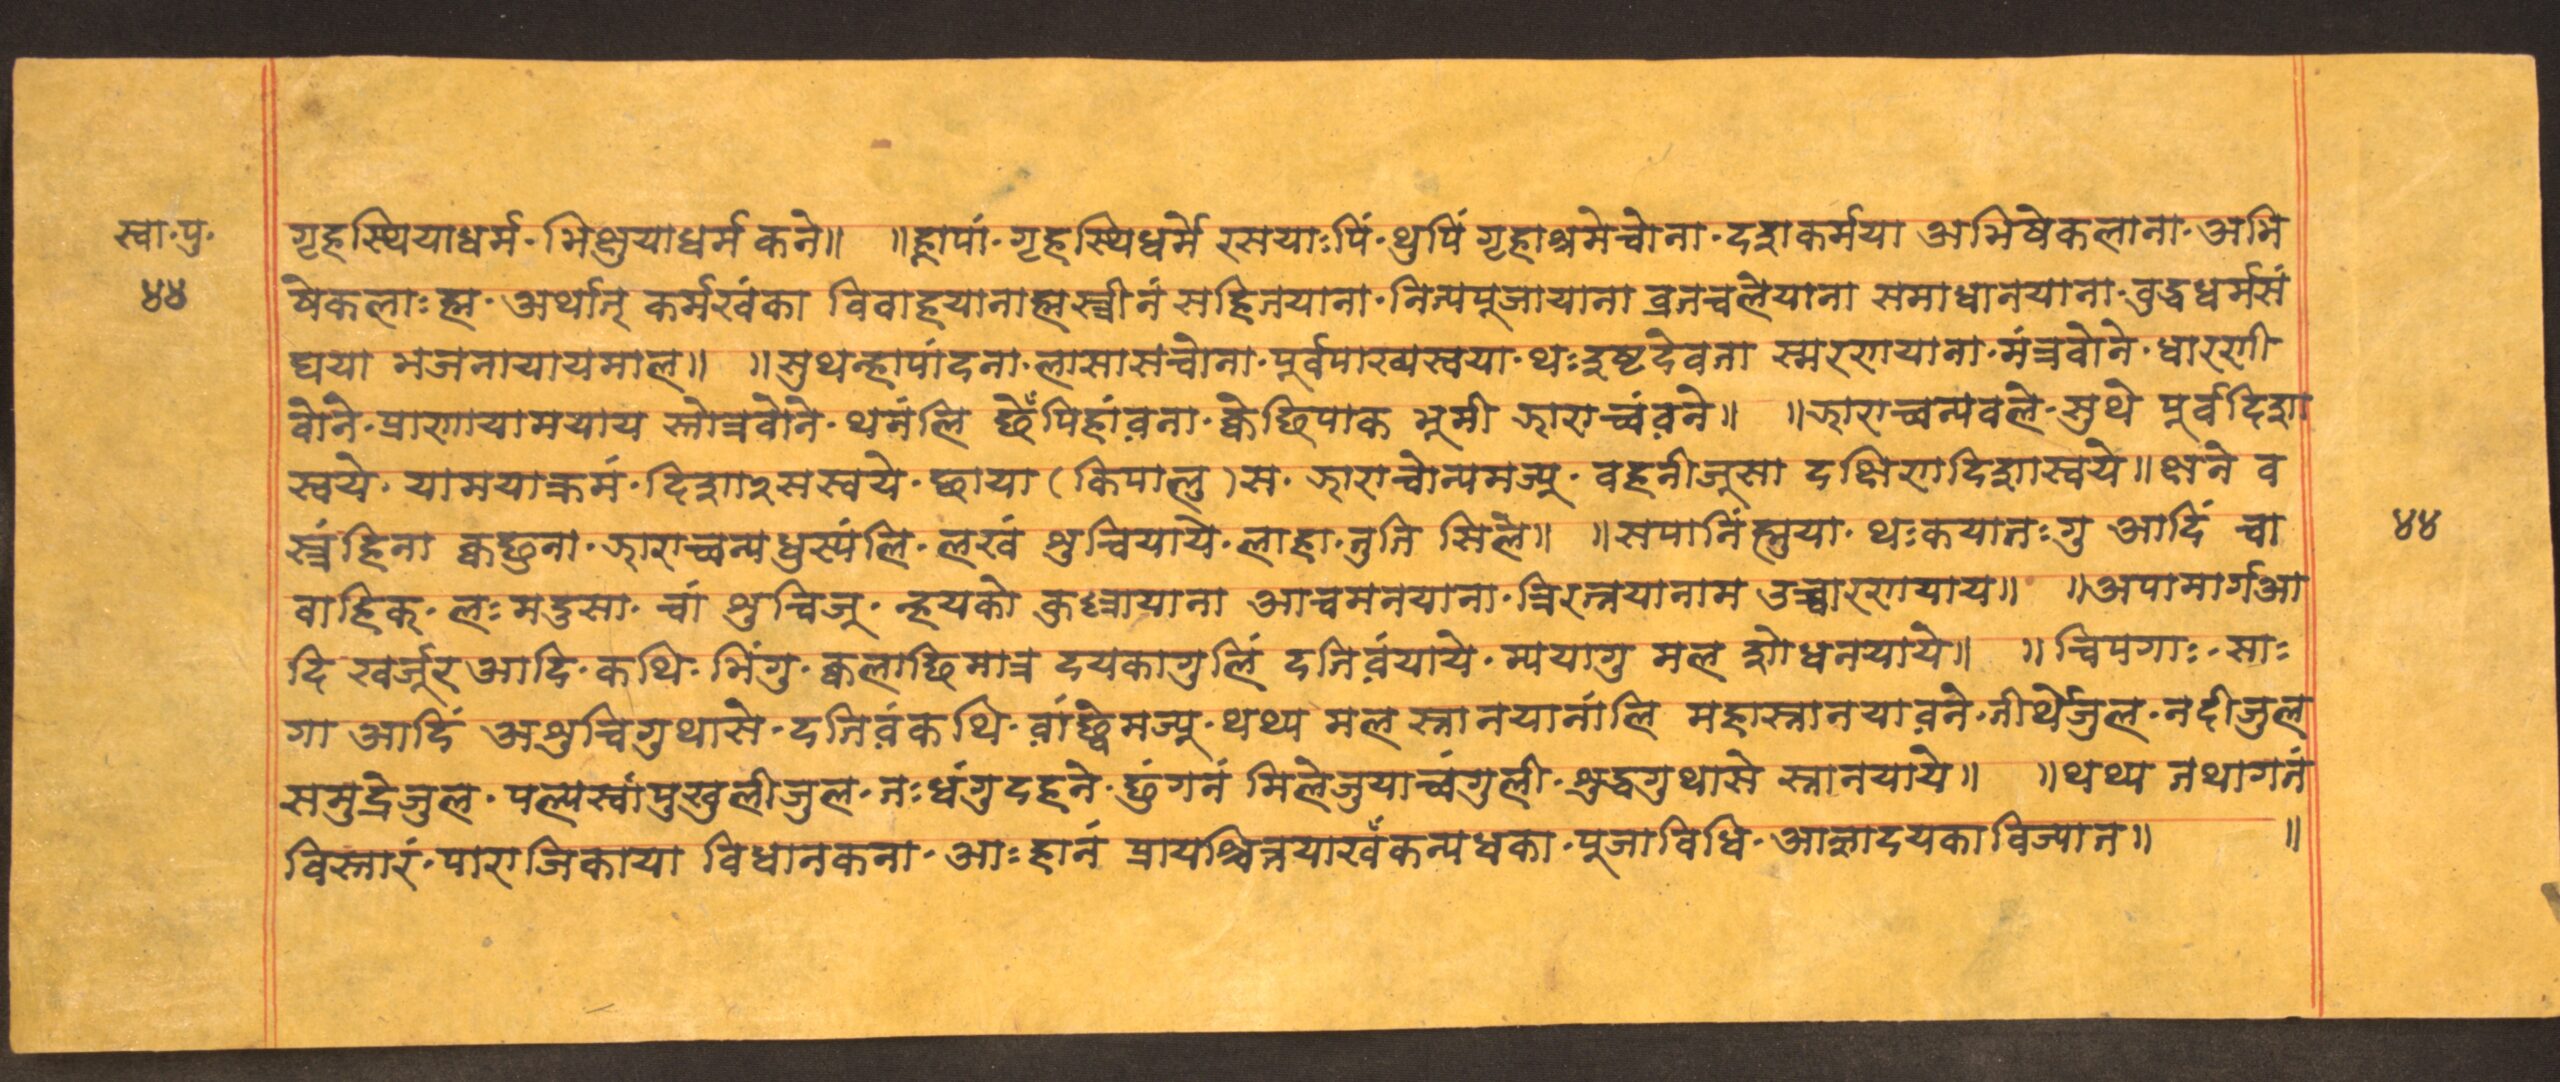 स्वा॰पु॰
४४
गृहस्थियाधर्म॰भिक्षुयाधर्म कने॥ ॥ह्नापां॰गृहस्थिधर्मे रसयाःपिं॰थुपिं गृहाश्रमेच्वोना॰दशकर्मया अभिषेकलाना॰अभि
षेकलाःह्म॰अर्थात् कर्मखंका विवाहयानाह्मस्त्रीनं सहितयाना॰नित्यपूजायाना व्रतचलेयाना समाधानयाना॰वुद्धधर्मसं
घया भजनायायमाल॥ ॥सुथन्हापांदना॰लासासच्वोना॰पूर्वपाख्यस्वया॰थःइष्टदेवता स्मरणयाना॰मंत्रवोने॰धारणी
वोने॰प्राणायामयाय स्तोत्रवोने॰थनंलि छेँपिहांव़ना॰क्वेछिपाक भूमी झाराच्वंव़ने॥ ॥झाराच्वन्यवले॰सुथे पूर्वदिशा
स्वये॰यामयाक्रमं॰दिशा२सस्वये॰छाया(किपालु)स॰झाराच्वोन्यमज्यू॰वहनीजूसा दक्षिणदिशास्वये॥क्षने व
स्त्रंहिना क्वछुना॰झाराच्वन्यधुस्यंलि॰लखं शुचियाये॰लाहा॰तुति सिले॥ ॥सपानिंह्नुया॰थःकयातःगु आदिं चा
वाहिक्॰लःमदुसा॰चां शुचिजू॰न्हयको कुल्लायाना आचमनयाना॰त्रिरत्नयानाम उच्चारणयाय॥ ॥अपामार्गआ
दि खर्जूरआदि॰कथि॰भिंगु॰क्वलाछिमात्र दयकागुलिं दतिव़ंयाये॰म्पयागु मल शोधनयाये॥ ॥चिपगाः॰साः
गा आदिं अशुचिगुथासे॰दतिव़ंकथि॰व़ांछ्वेमज्यू॰थथ्य मल स्नानयानांलि महास्नानयाव़ने॰तीर्थेजुल॰नदीजुल
समुद्रेजुल॰पल्यस्वांपुखुलीजुल॰तःधंगुदहने॰छुंगनं मिलेजुयाच्वंगुली॰शुद्धगुथासे स्नानयाये॥ ॥थथ्य तथागतं
विस्तारं॰पाराजिकाया विधानकना॰आःहानं प्रायश्चित्तयाखँकन्यधका॰पूजाविधि॰आज्ञादयकाविज्यात॥ ॥
४४